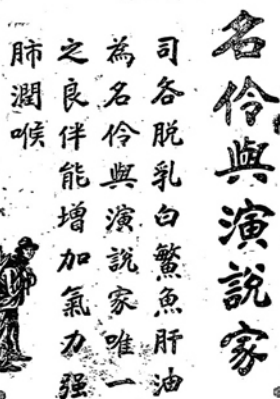 名伶與演說家
司各脱乳白鰵魚肝油
為名伶與演說家唯一
之良伴能增加氣力强
肺潤喉